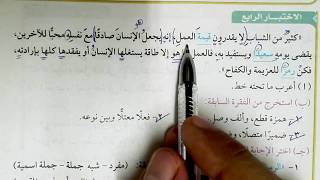 الاختبار الرابع
«كثيرٌ من الشباب لا يقدرون قيمة العمل، إنه يجعل الإنسان صادقًا مع نفسه محبًّا للآخرين،
يقضى يومه سعيدًا ويستفيد به، فالعمل هو إلا طاقة يستغلها الإنسانُ أو يفقدها كلها بإرادته،
فكن رمزًا للعزيمة والكفاح».
(١) أعرب ما تحته خط.
(٢) استخرج من الفقرة السابقة:
١- همزة قطع، وألف وصل
٢- فعلًا معتلًّا وبين نوعه.
٣- ضميرًا متصلًا،
(٣) اختر الإجابة
(مفرد - شبه جملة - جملة اسمية)